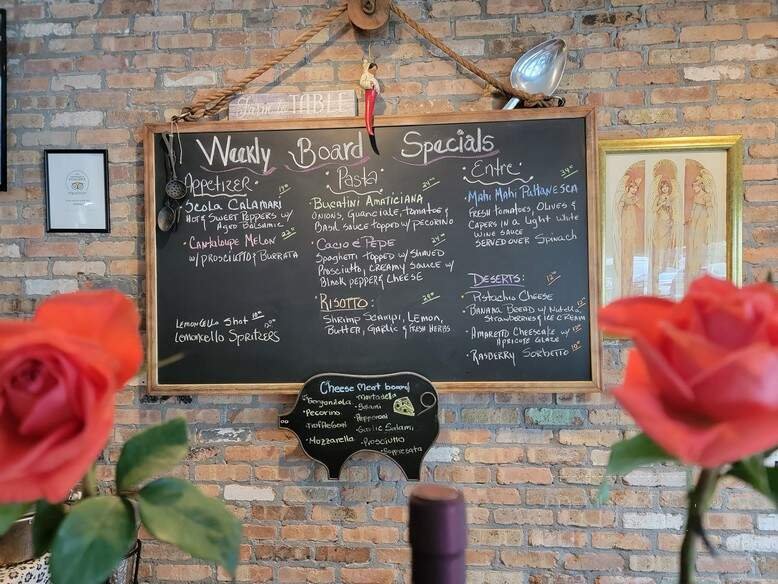 Farm to TABLE
Weekly Board Specials
Appetizer
Scola Calamari
Hot & Sweet Peppers w/
Aged Balsamic
Cantaloupe Melon
w/ prosciutto & Burrata
Lemoncello Shot
Lemoncello Spritzers
Pasta
Bucatini Amaticiana
Onions, Guanciale, tomatoes &
Basil sauce topped w/ pecorino
Cacio & Pepe
Spaghetti topped w/ shaved
Prosciutto, creamy sauce w/
Black pepper & cheese
Risotto:
Shrimp Scampi, Lemon,
Butter, Garlic & Fresh Herbs
Entre
Mahi Mahi Puttanesca
Fresh tomatoes, Olives &
Capers in a light white
wine sauce
Served over Spinach
Deserts:
Pistachio Cheese
Banana Bread w/ Nutella,
Strawberries & Ice Cream
Amaretto Cheescake w/
Apricote Glaze
Rasberry Sorbetto
Cheese Meat board
Gorgonzola
Pecorino
Mozzarella
Mortadella
Pepperoni
Garlic Salami
Prosciutto
Sopresata